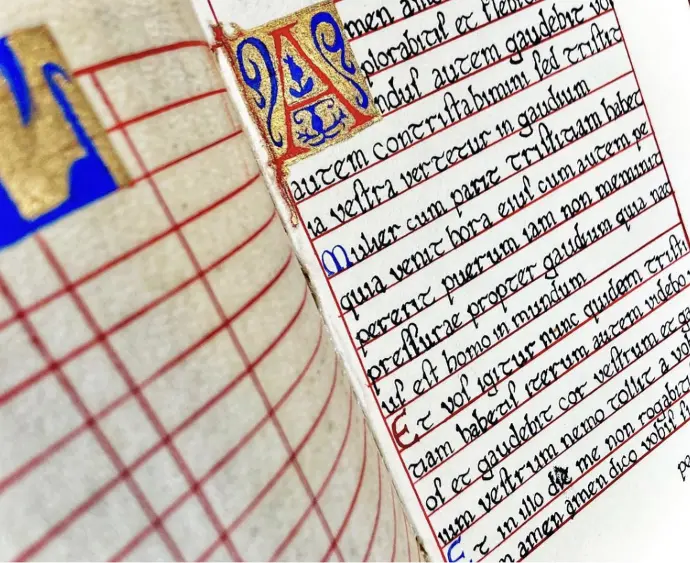 Amen ame
plorabitis et flebi
ndus autem gaudebit vo
autem contristabimini sed tristit
ia vestra vertetur in gaudium
Mulier cum parit tristitiam habet
quia venit hora eius cum autem pe
pererit puerum iam non meminit
pressurae propter gaudium quia nat
us est homo in mundum
Et vos igitur nunc quidem tristi
tiam habetis iterum autem videbo
os et gaudebit cor vestrum et ga
ium vestrum nemo tollit a vo
Et in illo die me non rogabiti
m amen amen dico vobis s